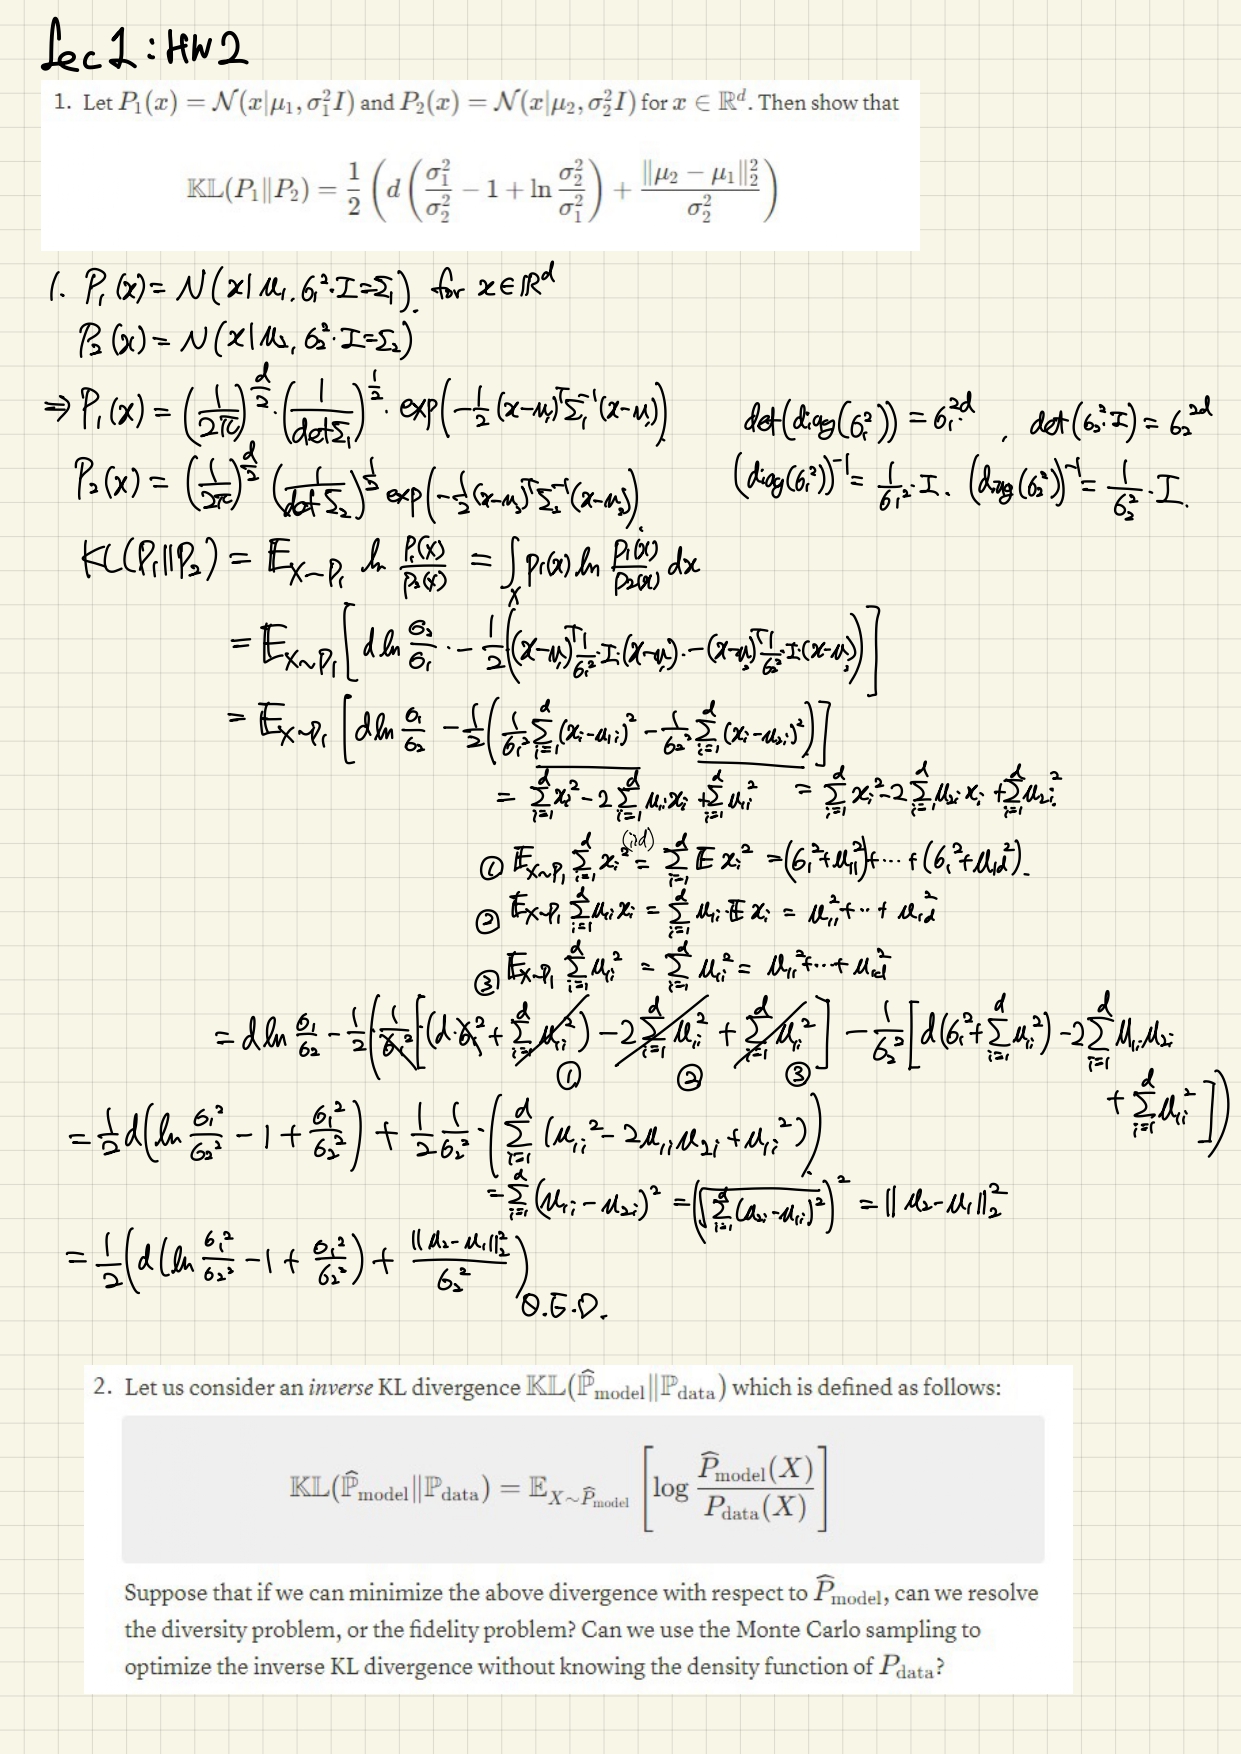 Lec 1 : HW 2
1. Let P₁(x) = N(x|μ₁, σ₁²I) and P₂(x) = N(x|μ₂, σ₂²I) for x ∈ ℝᵈ. Then show that
𝕂𝕃(P₁‖P₂) = 1/2 ( d ( σ₁²/σ₂² − 1 + ln σ₂²/σ₁² ) + ‖μ₂ − μ₁‖₂²/σ₂² )
1. P₁(x) = N(x|μ₁, σ₁²·I=Σ₁). for x∈ℝᵈ
P₂(x) = N(x|μ₂, σ₂²·I=Σ₂)
⇒ P₁(x) = (1/2π)^{d/2}·(1/detΣ₁)^{1/2}· exp(−1/2 (x−μ₁)ᵀΣ₁⁻¹(x−μ₁)) det(diag(σ₁²)) = σ₁^{2d}, det(σ₂²·I) = σ₂^{2d}
P₂(x) = (1/2π)^{d/2} (1/detΣ₂)^{1/2} exp(−1/2(x−μ₂)ᵀΣ₂⁻¹(x−μ₂)). (diag(σ₁²))⁻¹ = 1/σ₁²·I. (diag(σ₂²))⁻¹ = 1/σ₂²·I.
KL(P₁‖P₂) = 𝔼_{X∼P₁} ln P₁(X)/P₂(X) = ∫_X P₁(x) ln P₁(x)/P₂(x) dx
= 𝔼_{X∼P₁} [ d ln σ₂/σ₁ · − 1/2 ((x−μ₁)ᵀ 1/σ₁²·I·(x−μ₁)·−(x−μ₂)ᵀ 1/σ₂²·I·(x−μ₂)) ]
= 𝔼_{X∼P₁} [ d ln σ₁/σ₂ − 1/2 ( 1/σ₁² Σ_{i=1}^d (xᵢ−μ₁ᵢ)² − 1/σ₂² Σ_{i=1}^d (xᵢ−μ₂ᵢ)² ) ]
= Σ_{i=1}^d xᵢ² − 2 Σ_{i=1}^d μ₁ᵢxᵢ + Σ_{i=1}^d μ₁ᵢ² = Σ_{i=1}^d xᵢ² − 2 Σ_{i=1}^d μ₂ᵢ xᵢ + Σ_{i=1}^d μ₂ᵢ²
① 𝔼_{X∼P₁} Σ_{i=1}^d xᵢ² =(iid) Σ_{i=1}^d 𝔼 xᵢ² = (σ₁²+μ₁₁²)+⋯+(σ₁²+μ₁d²).
② 𝔼_{X∼P₁} Σ_{i=1}^d μ₁ᵢ xᵢ = Σ_{i=1}^d μ₁ᵢ·𝔼 xᵢ = μ₁₁²+⋯+ μ₁d²
③ 𝔼_{X∼P₁} Σ_{i=1}^d μ₁ᵢ² = Σ_{i=1}^d μ₁ᵢ² = μ₁₁²+⋯+μ₁d²
= d ln σ₁/σ₂ − 1/2 ( 1/σ₁² [ (d·σ₁² + Σ_{i=1}^d μ₁ᵢ²) − 2 Σ_{i=1}^d μ₁ᵢ² + Σ_{i=1}^d μ₁ᵢ² ] − 1/σ₂² [ d(σ₁²+ Σ_{i=1}^d μ₁ᵢ²) − 2 Σ_{i=1}^d μ₁ᵢμ₂ᵢ
① ② ③
+ Σ_{i=1}^d μ₁ᵢ² ] )
= 1/2 d ( ln σ₁²/σ₂² − 1 + σ₁²/σ₂² ) + 1/2 1/σ₂² · ( Σ_{i=1}^d (μ₁ᵢ² − 2μ₁ᵢμ₂ᵢ + μ₁ᵢ²) )
= Σ_{i=1}^d (μ₁ᵢ − μ₂ᵢ)² = ( √(Σ_{i=1}^d (μ₂ᵢ−μ₁ᵢ)²) )² = ‖μ₂−μ₁‖₂²
= 1/2 ( d ( ln σ₁²/σ₂² − 1 + σ₁²/σ₂² ) + ‖μ₂−μ₁‖₂²/σ₂² )
Q.E.D.
2. Let us consider an inverse KL divergence 𝕂𝕃(ℙ̂_model‖ℙ_data) which is defined as follows:
𝕂𝕃(ℙ̂_model‖ℙ_data) = 𝔼_{X∼P̂_model} [ log P̂_model(X)/P_data(X) ]
Suppose that if we can minimize the above divergence with respect to P̂_model, can we resolve
the diversity problem, or the fidelity problem? Can we use the Monte Carlo sampling to
optimize the inverse KL divergence without knowing the density function of P_data?